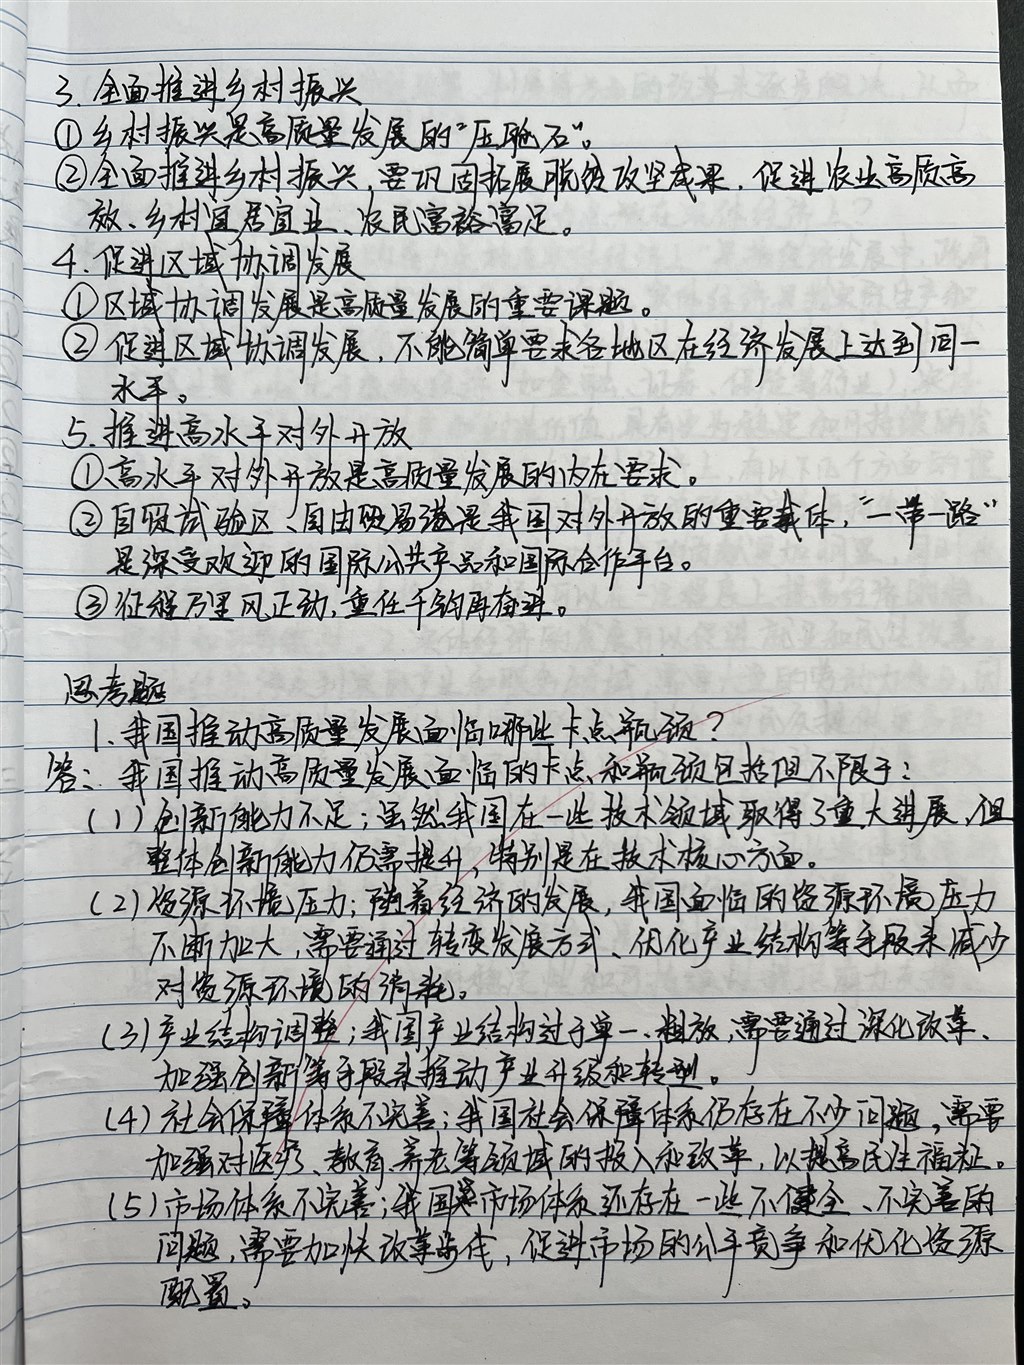 3. 全面推进乡村振兴
① 乡村振兴是高质量发展的“压舱石”。
② 全面推进乡村振兴，要巩固拓展脱贫攻坚成果，促进农业高质高
效、乡村宜居宜业、农民富裕富足。
4. 促进区域协调发展
① 区域协调发展是高质量发展的重要课题。
② 促进区域协调发展，不能简单要求各地区在经济发展上达到同一
水平。
5. 推进高水平对外开放
① 高水平对外开放是高质量发展的内在要求。
② 自贸试验区、自由贸易港是我国对外开放的重要载体，“一带一路”
是深受欢迎的国际公共产品和国际合作平台。
③ 征程万里风正劲，重任千钧再奋进。
思考题
1. 我国推动高质量发展面临哪些卡点瓶颈？
答：我国推动高质量发展面临的卡点和瓶颈包括但不限于：
（1）创新能力不足；虽然我国在一些技术领域取得了重大进展，但
整体创新能力仍需提升，特别是在技术核心方面。
（2）资源环境压力；随着经济的发展，我国面临的资源环境压力
不断加大，需要通过转变发展方式、优化产业结构等手段来减少
对资源环境的消耗。
（3）产业结构调整；我国产业结构过于单一、粗放，需要通过深化改革、
加强创新等手段来推动产业升级和转型。
（4）社会保障体系不完善；我国社会保障体系仍存在不少问题，需要
加强对医疗、教育、养老等领域的投入和改革，以提高民生福祉。
（5）市场体系不完善；我国市场体系还存在一些不健全、不完善的
问题，需要加快改革步伐，促进市场的公平竞争和优化资源
配置。